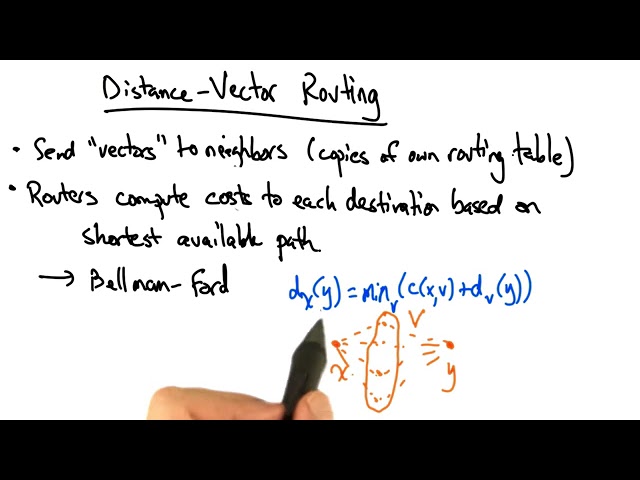 Distance-Vector Routing
• Send "vectors" to neighbors (copies of own routing table)
• Routers compute costs to each destination based on
shortest available path
→ Bellman-Ford
dx(y) = minv(c(x,v) + dv(y))
v
x
y